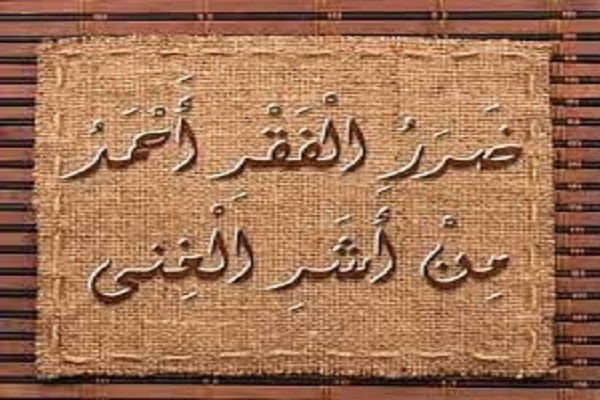 ضَرَرُ الْفَقْرِ أَحْمَدُ
مِنْ أَشَرِ الْغِنى